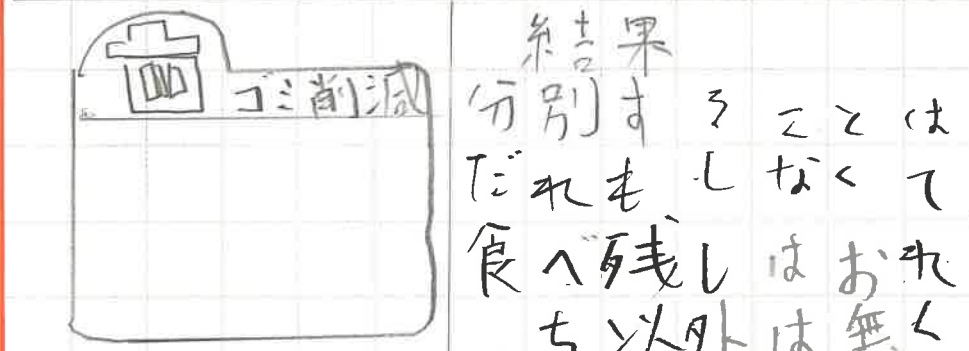 ゴミ削減
結果
分別することは
だれもしなくて
食べ残しはおれ
ち以外は無く